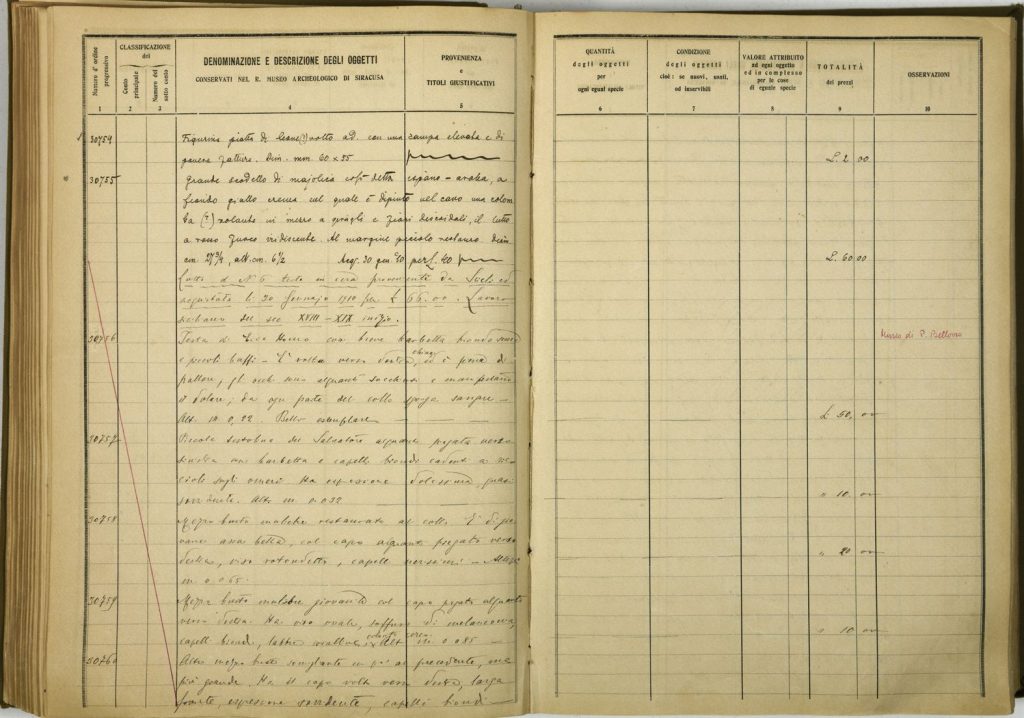 Numero d' ordine progressivo
CLASSIFICAZIONE del
Conto principale
Numero del sotto conto
DENOMINAZIONE E DESCRIZIONE DEGLI OGGETTI
CONSERVATI NEL R. MUSEO ARCHEOLOGICO DI SIRACUSA
PROVENIENZA
e
TITOLI GIUSTIFICATIVI
1 2 3 4 5
30754 Figurina piatta di (?) rotto ad. con una campa elevata e di
fattura. Dim. mm. 60 x 25
30755 Grande scodello di majolica cosi detta ispano-araba, a
fondo giallo crema nel quale è dipinto nel cavo una colom
ba (?) volante in mezzo a e discoidali, il tutto
a rosso fuoco iridiscente. Al margine piccolo restauro. Dim.
cm. 27 3/4, alt. cm. 6 1/2 Acq. 30 gen. 40 per L. 40
Lotto di N. 6 teste in cera provenienti da ed
acquistato li 30 Gennajo 1910 per £ 66.00. Lavoro
siciliano del sec XVIII - XIX inizio.
30756 Testa di Ecce Homo con breve barbetta
e piccoli baffi - E' volta verso destra, ed è piena di
pallore, gli occhi sono alquanto socchiusi e
il dolore; da ogni parte del collo sgorga sangue -
Alt. m. 0,22. Bello esemplare
30757 Piccola del Salvatore alquanto piegata verso
sinistra con barbetta e capelli biondi cadenti a ric-
cioli sugli omeri. Ha espressione dolcissima, quasi
sorridente. Alto m 0.032
30758 Mezzo busto muliebre restaurato al collo. E' di gio
vane assa bella, col capo alquanto piegato verso
destra, viso rotondetto, capelli nerissimi - Altezza
m 0.065
30759 Mezzo busto muliebre giovanile col capo piegato alquanto
verso destra. Ha viso ovale, soffuso di melanconia,
capelli biondi, labbra Alt m 0.085 -
30760 Altro mezzo busto somigliante un po' al precedente, ma
più grande. Ha il capo volto verso destra, larga
fronte, espressione sorridente, capelli biondi
QUANTITÀ
degli oggetti
per
ogni egual specie
CONDIZIONE
degli oggetti
cioè: se nuovi, usati,
od inservibili
VALORE ATTRIBUITO
ad ogni oggetto
ed in complesso
per le cose
di eguale specie
TOTALITÀ
dei prezzi
OSSERVAZIONI
6 7 8 9 10
L. 2 00
L. 60 00
Museo di P. Bellomo
L. 50, 00
" 10. 00
" 20 00
" 10 00